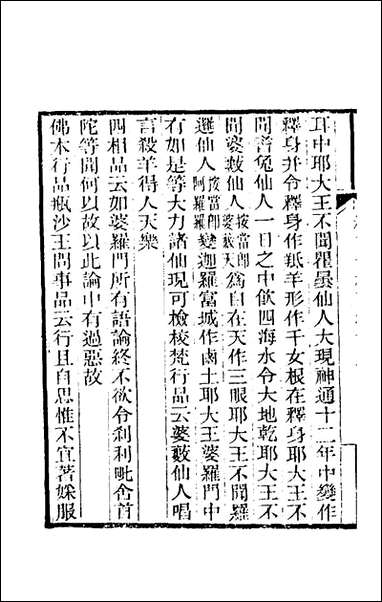 耳中耶大王不聞瞿曇仙人大現神通十二年中變作
釋身并令釋身作羝羊形作千女根在釋身耶大王不
聞耆兔仙人一日之中飲四海水令大地乾耶大王不
聞婆藪仙人按當卽婆藪天爲自在天作三眼耶大王不聞羅
邏仙人按當卽阿羅邏變迦羅富城作鹵土耶大王婆羅門中
有如是等大力諸仙現可檢校梵行品云婆藪仙人唱
言殺羊得人天樂
四相品云如婆羅門所有語論終不欲令刹利毗舍首
陀等聞何以故以此論中有過惡故
佛本行品瓶沙王問事品云行且自思惟不宜著婇服